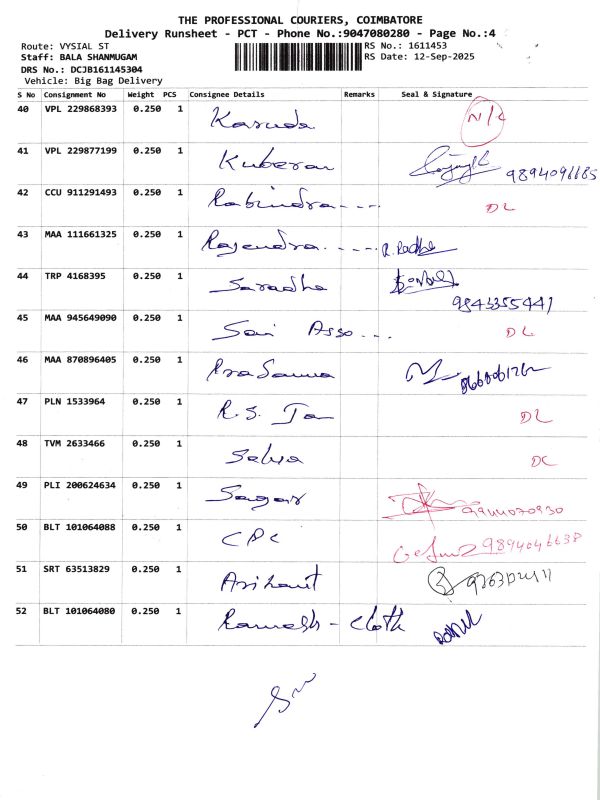 THE PROFESSIONAL COURIERS, COIMBATORE
Delivery Runsheet - PCT - Phone No.:9047080280 - Page No.:4
Route: VYSIAL ST RS No.: 1611453
Staff: BALA SHANMUGAM RS Date: 12-Sep-2025
DRS No.: DCJB161145304
Vehicle: Big Bag Delivery
S No Consignment No Weight PCS Consignee Details Remarks Seal & Signature
40 VPL 229868393 0.250 1 Karuda N/C
41 VPL 229877199 0.250 1 Kuberan 9894096685
42 CCU 911291493 0.250 1 Rabindra---- DL
43 MAA 111661325 0.250 1 Rajendra.---- R. Radha
44 TRP 4168395 0.250 1 Saradha 9843355441
45 MAA 945649090 0.250 1 Sai Asso... DL
46 MAA 870896405 0.250 1 Prasanna
47 PLN 1533964 0.250 1 R.S. Ja DL
48 TVM 2633466 0.250 1 Selva DC
49 PLI 200624634 0.250 1 Sagar 9944070930
50 BLT 101064088 0.250 1 CPC 9894046638
51 SRT 63513829 0.250 1 Arihant
52 BLT 101064080 0.250 1 Ramesh - cloth